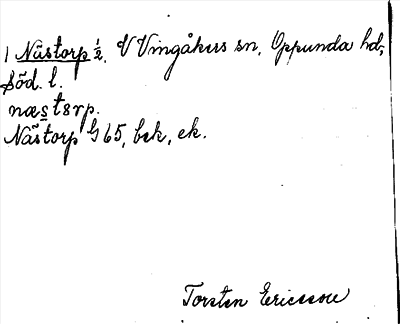 1 Nästorp ½. V Vingåkers sn, Oppunda hd,
Söd. l.
næst8rp.
Nästorp G 65, bek, ek.
Torsten Ericsson